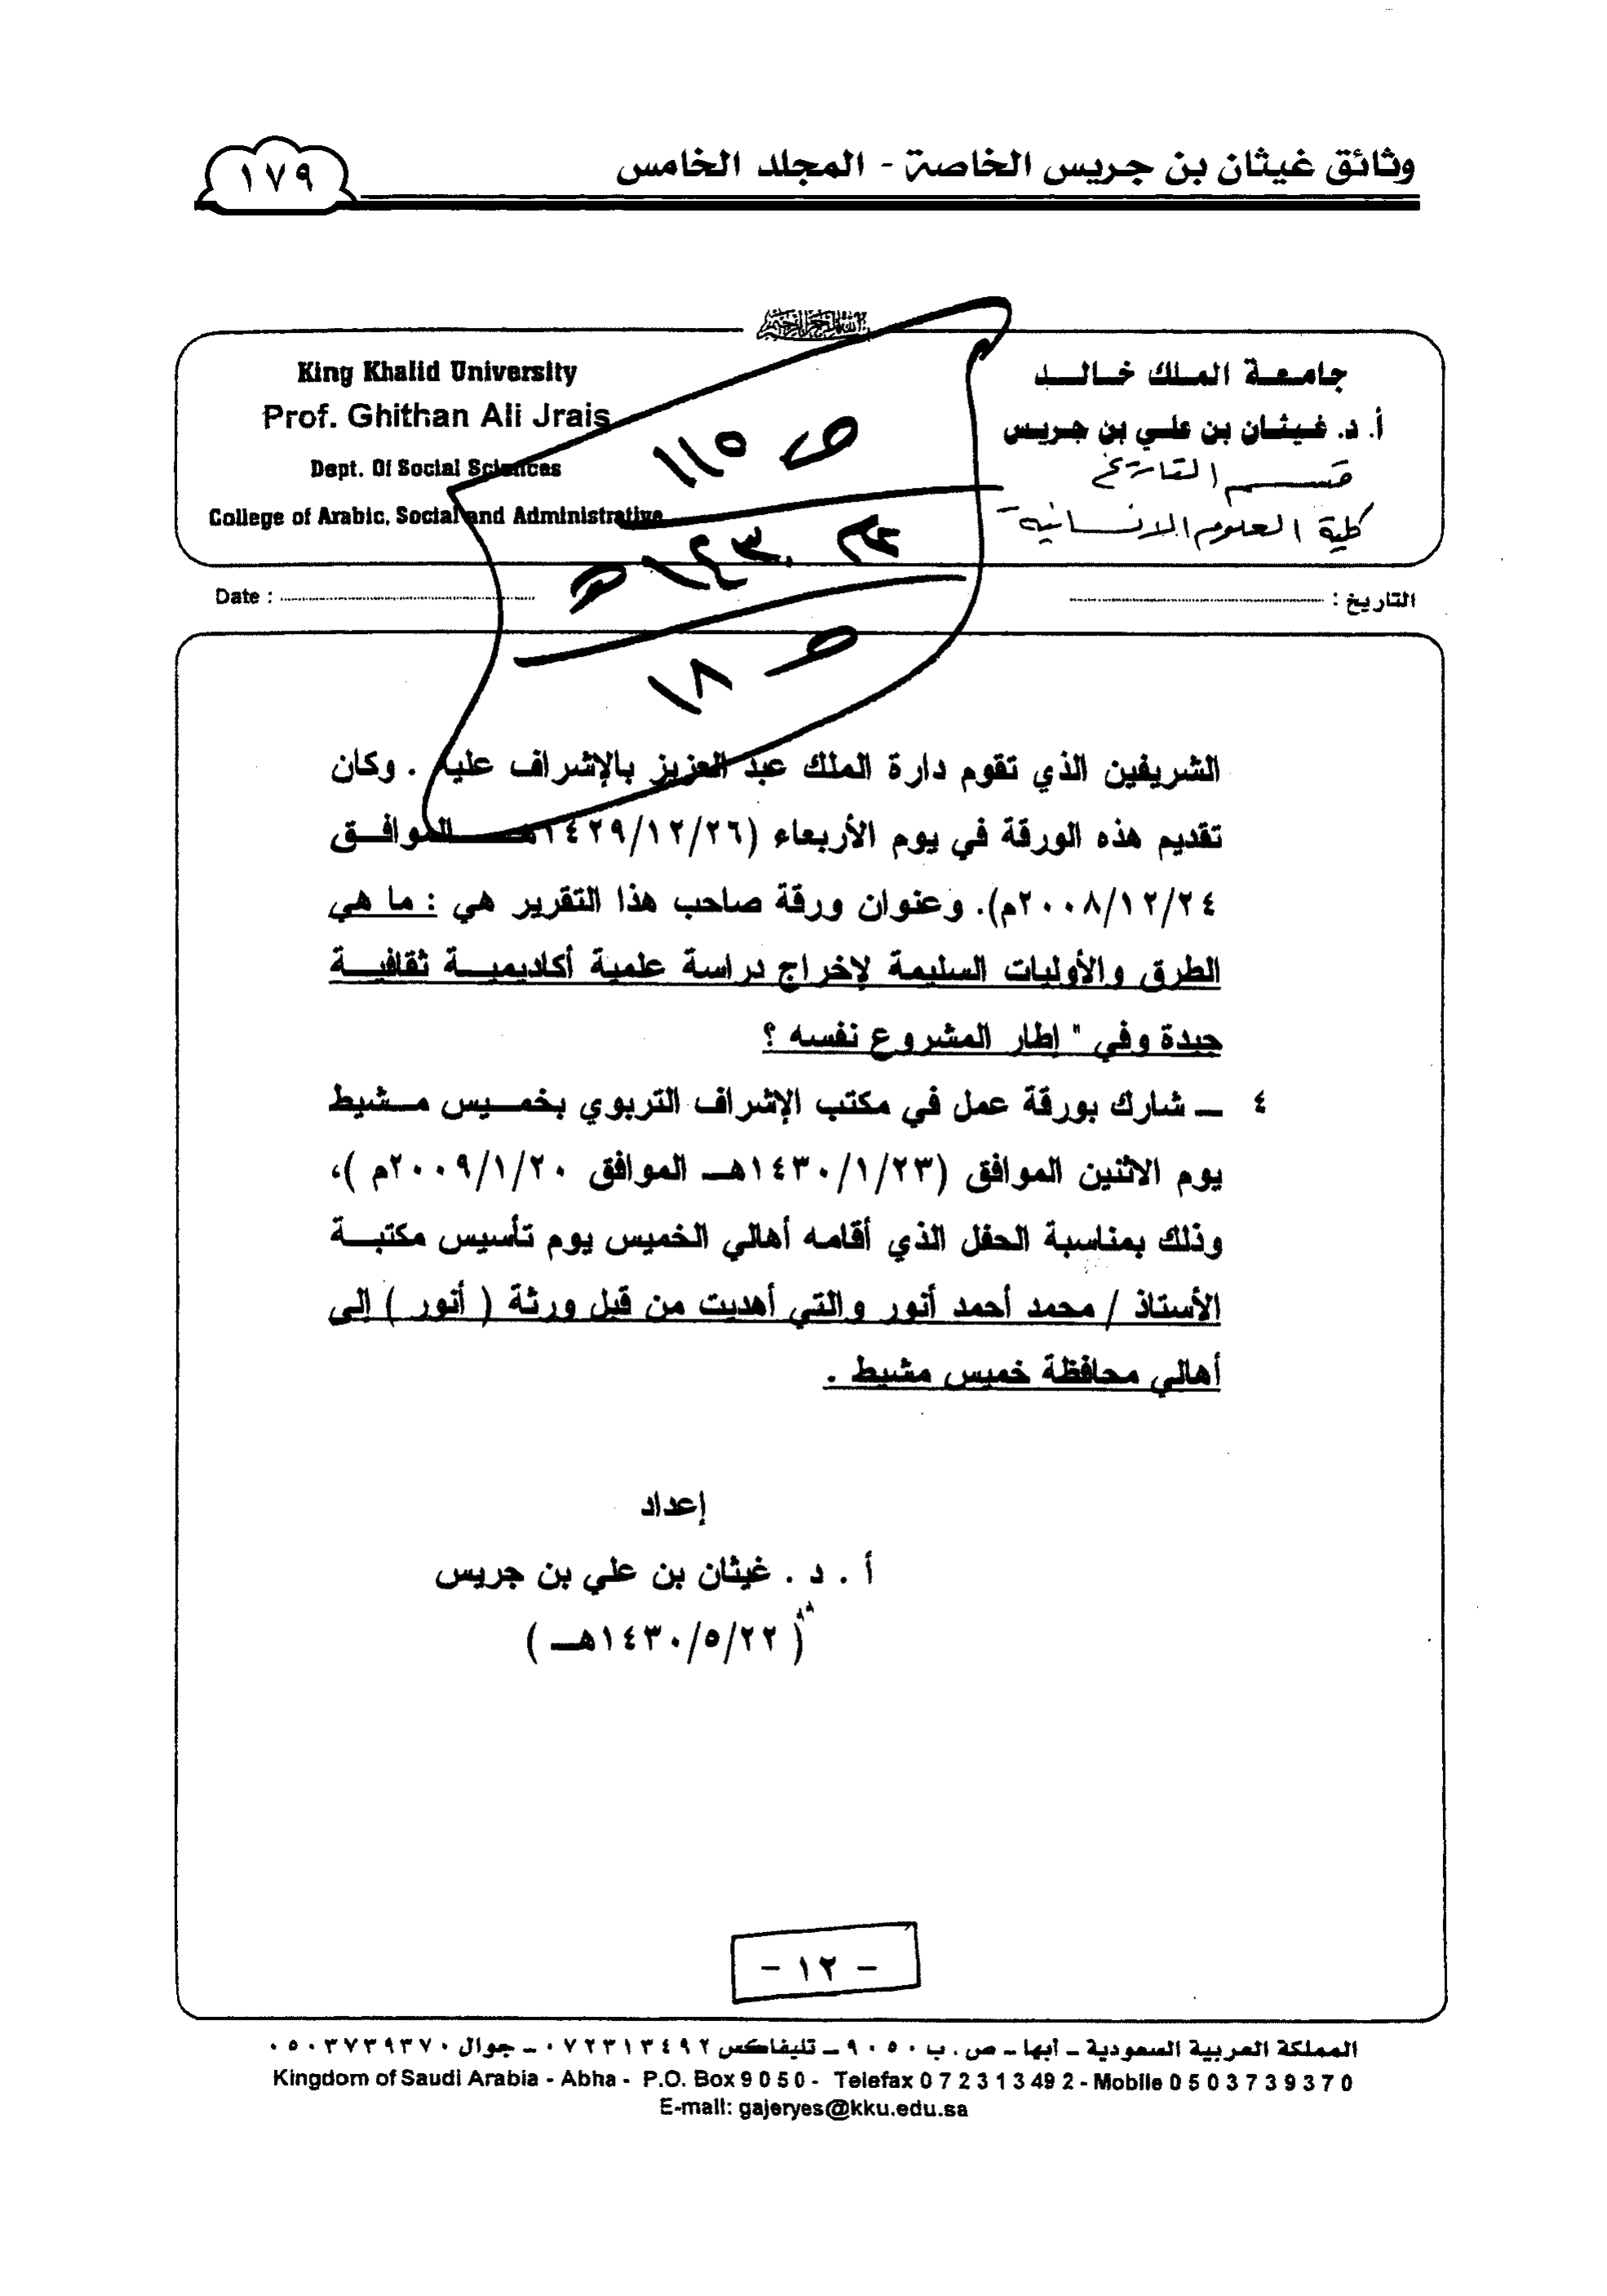 وثائق غيثان بن جريس الخاصة - المجلد الخامس
١٧٩
جامعة الملك خالد
أ. د. غيثان بن علي بن جريس
قسم التاريخ
كلية العلوم الانسانية
King Khalid University
Prof. Ghithan Ali Jrais
Dept. Of Social Sciences
College of Arabic, Social and Administrative
ص ١١٥
١٤٣٠
ص ١٨
التاريخ :
Date :
الشريفين الذي تقوم دارة الملك عبد العزيز بالإشراف عليه . وكان
تقديم هذه الورقة في يوم الأربعاء (١٤٢٩/١٢/٢٦هـ الموافق
٢٠٠٨/١٢/٢٤م). وعنوان ورقة صاحب هذا التقرير هي : ما هي
الطرق والأوليات السليمة لإخراج دراسة علمية أكاديمية ثقافية
جيدة وفي " إطار المشروع نفسه ؟
٤ ـ شارك بورقة عمل في مكتب الإشراف التربوي بخميس مشيط
يوم الاثنين الموافق (١٤٣٠/١/٢٣هـ الموافق ٢٠٠٩/١/٢٠م )،
وذلك بمناسبة الحفل الذي أقامه أهالي الخميس يوم تأسيس مكتبة
الأستاذ / محمد أحمد أنور والتي أهديت من قبل ورثة ( أنور ) إلى
أهالي محافظة خميس مشيط .
إعداد
أ . د . غيثان بن علي بن جريس
( ١٤٣٠/٥/٢٢هـ )
- ١٢ -
المملكة العربية السعودية – أبها – ص . ب ٩٠٥٠ – تليفاكس ٠٧٢٣١٣٤٩٢ – جوال ٠٥٠٣٧٣٩٣٧٠
Kingdom of Saudi Arabia - Abha - P.O. Box 9 0 5 0 - Telefax 0 7 2 3 1 3 49 2 - Mobile 0 5 0 3 7 3 9 3 7 0
E-mail: gajeryes@kku.edu.sa